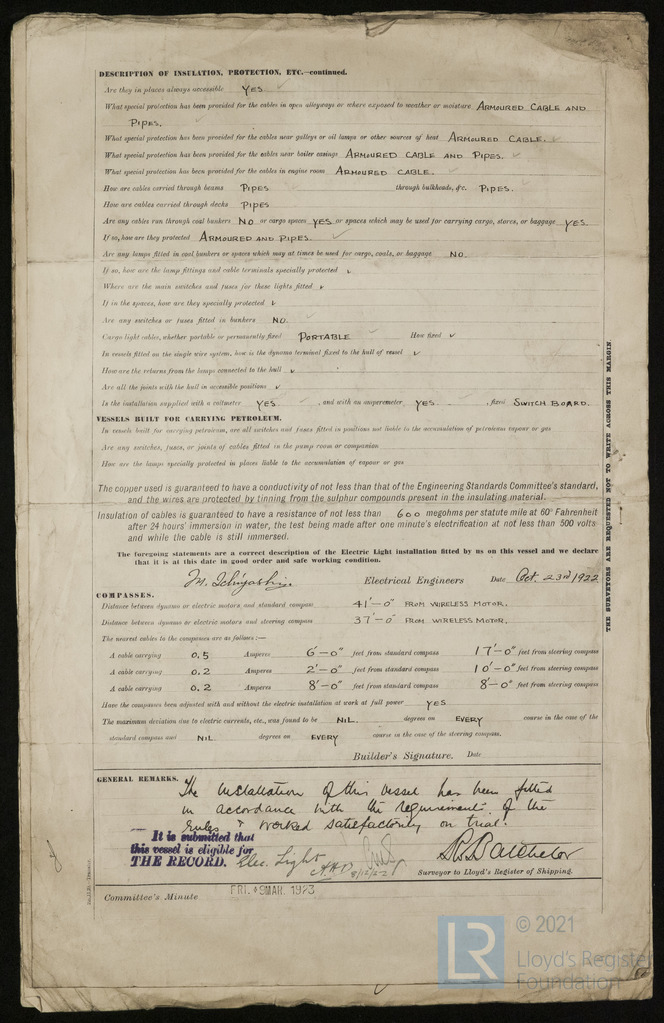 DESCRIPTION OF INSULATION, PROTECTION, ETC.—continued.
Are they in places always accessible YES
What special protection has been provided for the cables in open alleyways or where exposed to weather or moisture ARMOURED CABLE AND
PIPES.
What special protection has been provided for the cables near galleys or oil lamps or other sources of heat ARMOURED CABLE.
What special protection has been provided for the cables near boiler casings ARMOURED CABLE AND PIPES.
What special protection has been provided for the cables in engine room ARMOURED CABLE.
How are cables carried through beams PIPES through bulkheads, &c. PIPES.
How are cables carried through decks PIPES
Are any cables run through coal bunkers NO or cargo spaces YES or spaces which may be used for carrying cargo, stores, or baggage YES.
If so, how are they protected ARMOURED AND PIPES.
Are any lamps fitted in coal bunkers or spaces which may at times be used for cargo, coals, or baggage NO.
If so, how are the lamp fittings and cable terminals specially protected ✓
Where are the main switches and fuses for these lights fitted ✓
If in the spaces, how are they specially protected ✓
Are any switches or fuses fitted in bunkers NO.
Cargo light cables, whether portable or permanently fixed PORTABLE How fixed ✓
In vessels fitted on the single wire system, how is the dynamo terminal fixed to the hull of vessel ✓
How are the returns from the lamps connected to the hull ✓
Are all the joints with the hull in accessible positions ✓
Is the installation supplied with a voltmeter YES , and with an amperemeter YES , fixed SWITCH BOARD.
VESSELS BUILT FOR CARRYING PETROLEUM.
In vessels built for carrying petroleum, are all switches and fuses fitted in positions not liable to the accumulation of petroleum vapour or gas
Are any switches, fuses, or joints of cables fitted in the pump room or companion
How are the lamps specially protected in places liable to the accumulation of vapour or gas
The copper used is guaranteed to have a conductivity of not less than that of the Engineering Standards Committee's standard,
and the wires are protected by tinning from the sulphur compounds present in the insulating material.
Insulation of cables is guaranteed to have a resistance of not less than 600 megohms per statute mile at 60° Fahrenheit
after 24 hours' immersion in water, the test being made after one minute's electrification at not less than 500 volts
and while the cable is still immersed.
The foregoing statements are a correct description of the Electric Light installation fitted by us on this vessel and we declare
that it is at this date in good order and safe working condition.
Electrical Engineers Date Oct. 23rd 1922
COMPASSES.
Distance between dynamo or electric motors and standard compass 41'-0" FROM WIRELESS MOTOR.
Distance between dynamo or electric motors and steering compass 37'-0" FROM WIRELESS MOTOR.
The nearest cables to the compasses are as follows:—
A cable carrying 0.5 Amperes 6'-0" feet from standard compass 17'-0" feet from steering compass
A cable carrying 0.2 Amperes 2'-0" feet from standard compass 10'-0" feet from steering compass
A cable carrying 0.2 Amperes 8'-0" feet from standard compass 8'-0" feet from steering compass
Have the compasses been adjusted with and without the electric installation at work at full power YES
The maximum deviation due to electric currents, etc., was found to be NIL. degrees on EVERY course in the case of the
standard compass and NIL degrees on EVERY course in the case of the steering compass.
Builder's Signature. Date
GENERAL REMARKS.
The installation of this vessel has been fitted
in accordance with the requirements of the
rules & worked satisfactorily on trial.
It is submitted that
this vessel is eligible for
THE RECORD. Elec. Light
8/12/22
Surveyor to Lloyd's Register of Shipping.
Committee's Minute FRI. 9 MAR. 1923
THE SURVEYORS ARE REQUESTED NOT TO WRITE ACROSS THIS MARGIN.
LR
© 2021
Lloyd's Register
Foundation